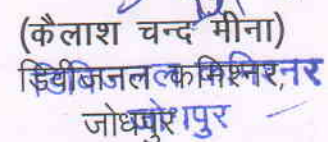 (कैलाश चन्द मीना)
डिवीजनल कमिश्नर,
जोधपुर